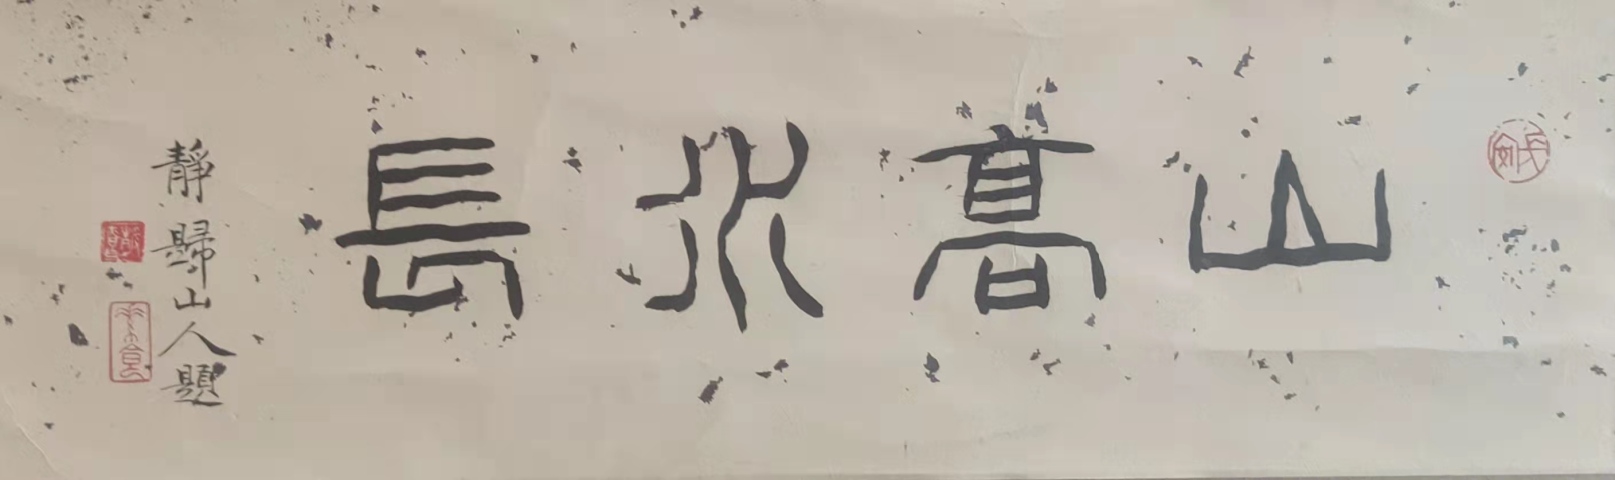 山高水長
靜歸山人題